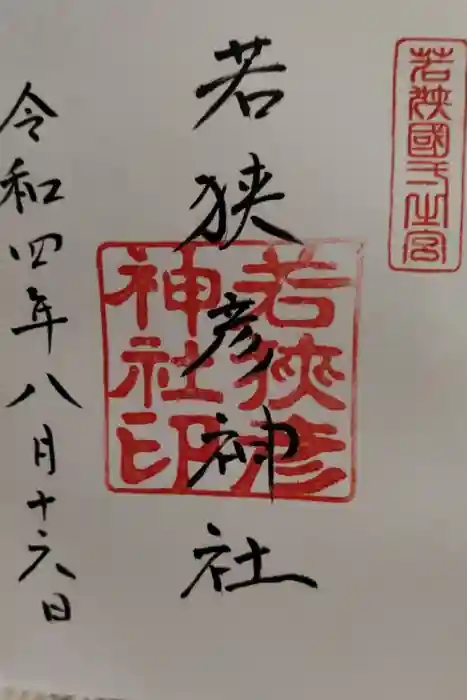 若狭國一之宮
若狭彦神社
若狭彦
神社印
令和四年八月十六日